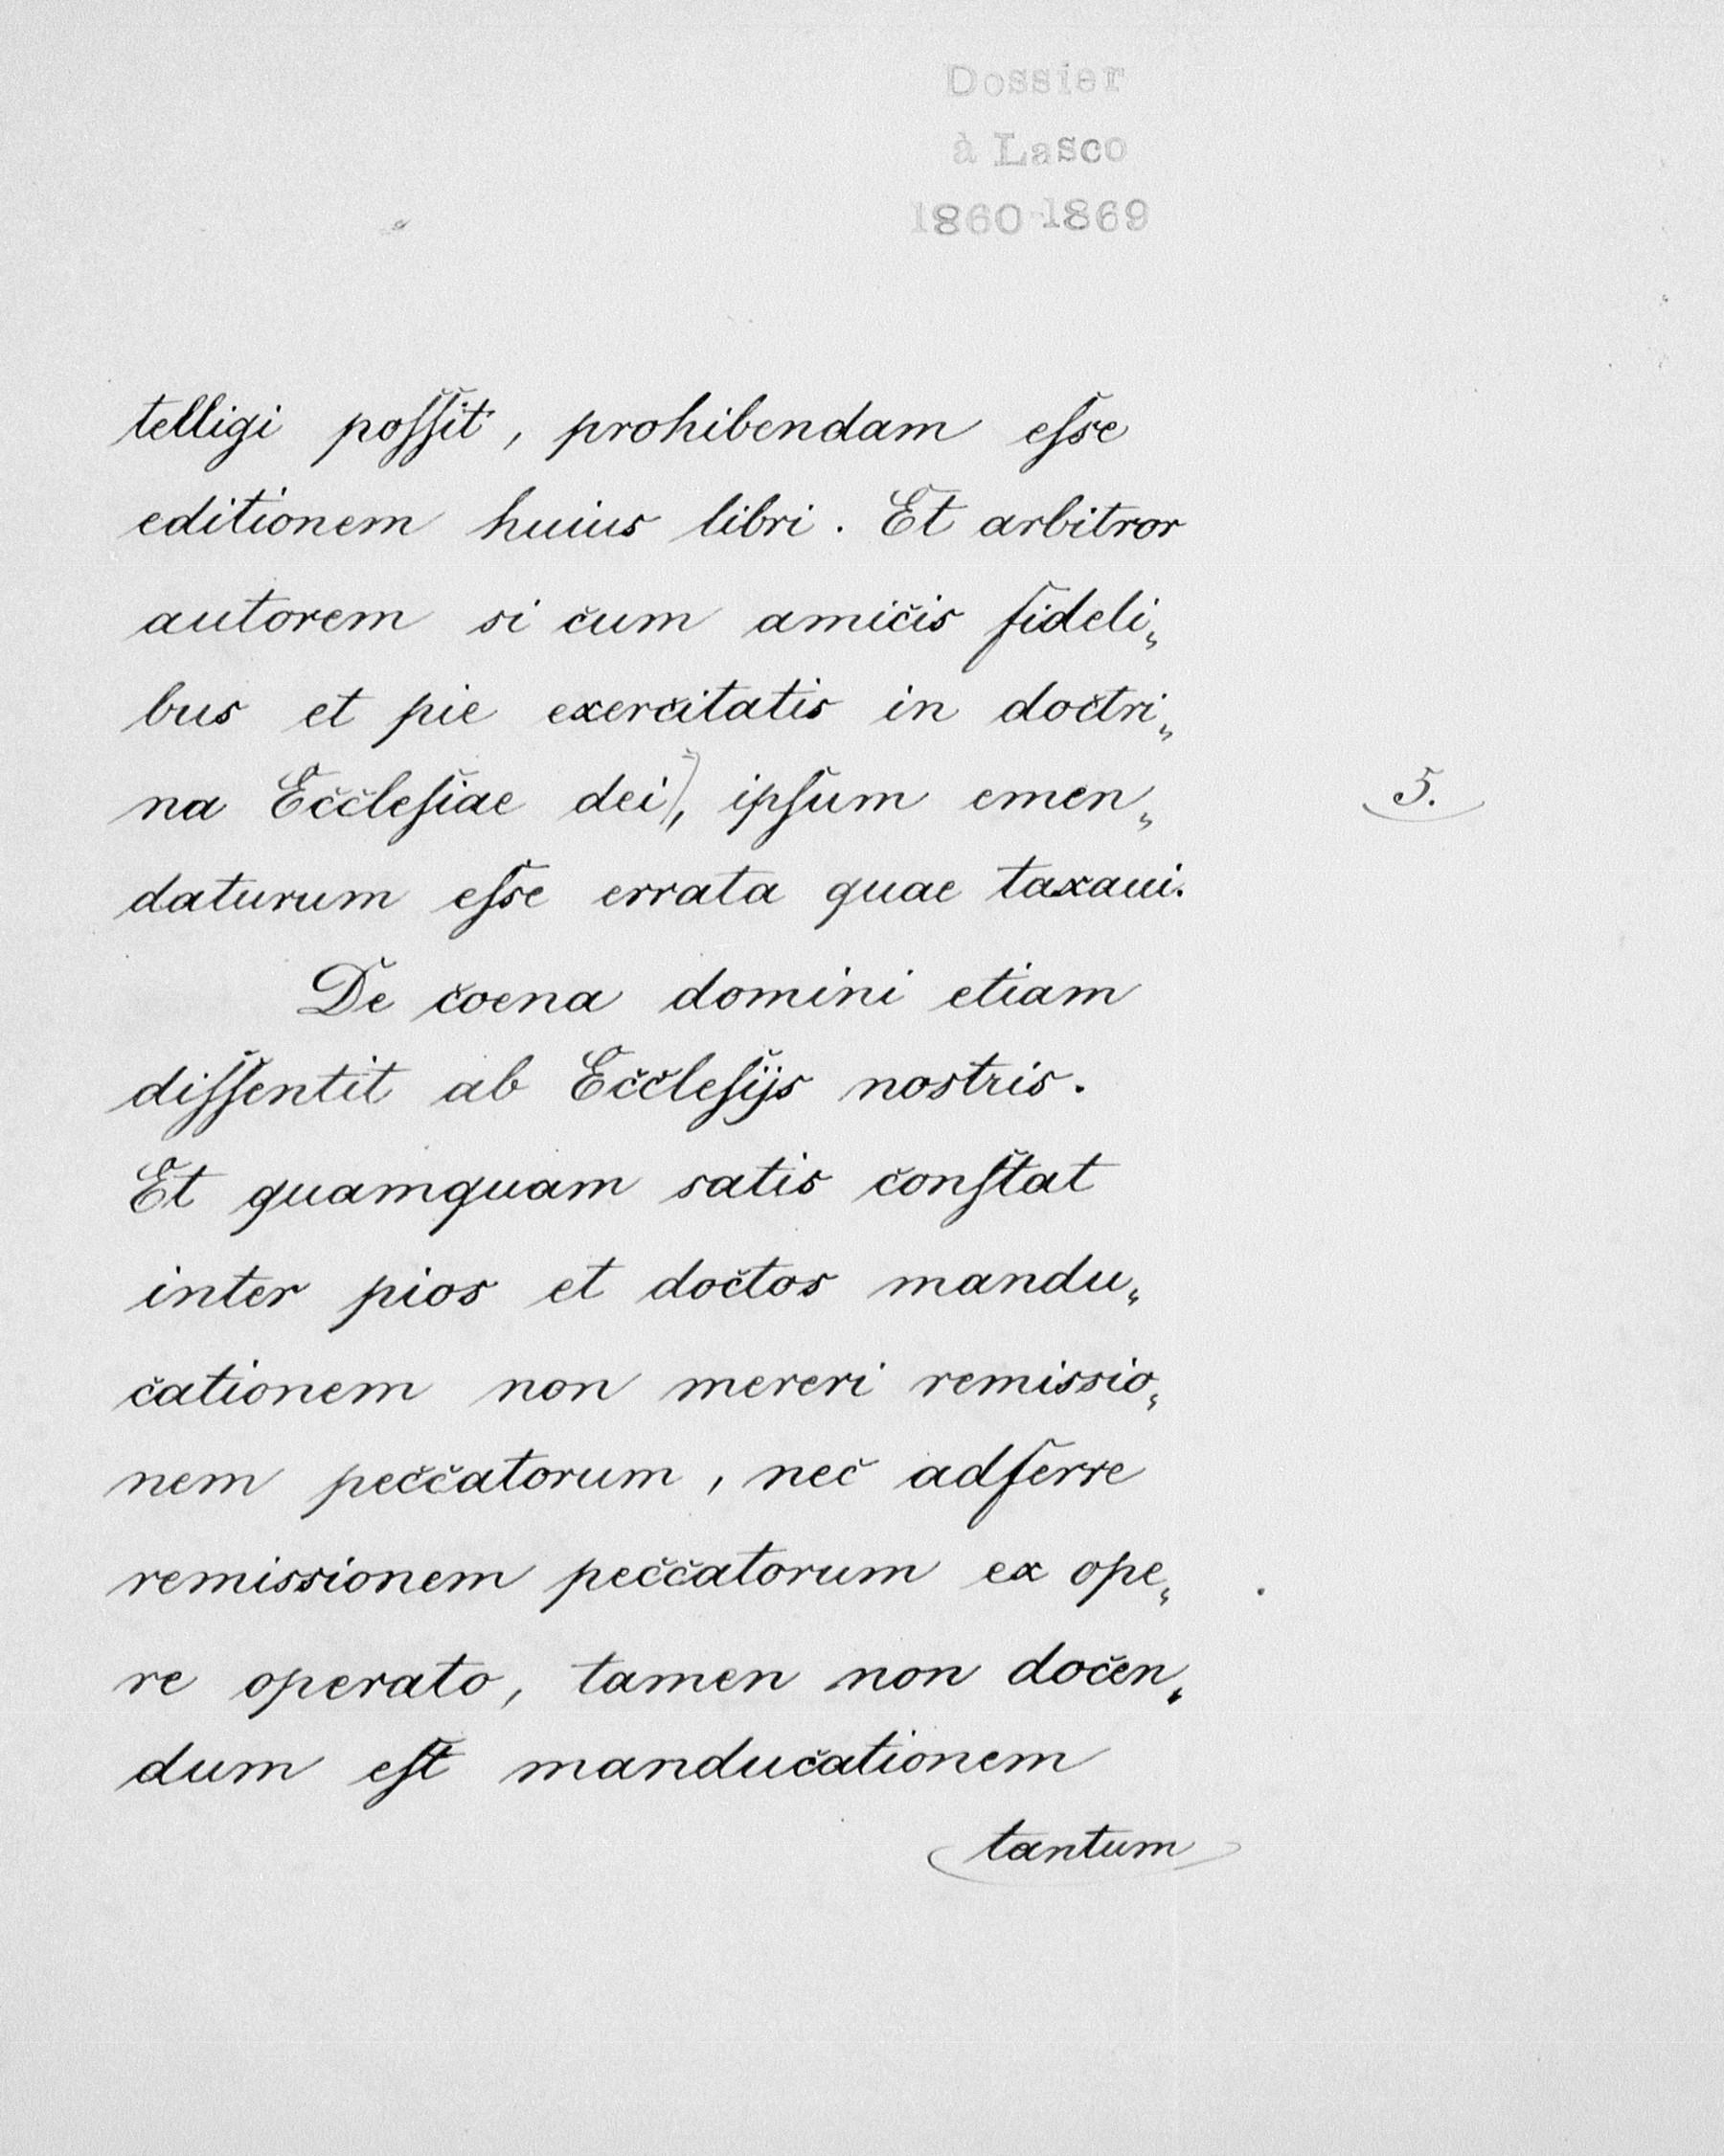 Dossier
à Lasco
1860-1869
telligi poſſit, prohibendam eſse
editionem huius libri. Et arbitror
autorem si čum amičis fideli„
bus et pie exerčitatis in dočtri„
na Eččleſiae dei), ipſum emen„
5.
daturum eſse errata quae taxaui.
De čoena domini etiam
diſſentit ab Eččleſijs nostris.
Et quamquam satis čonſtat
inter pios et dočtos mandu„
čationem non mereri remissio„
nem peččatorum, neč adferre
remissionem peččatorum ex ope„
re operato, tamen non dočen„
dum eſt mandučationem
tantum